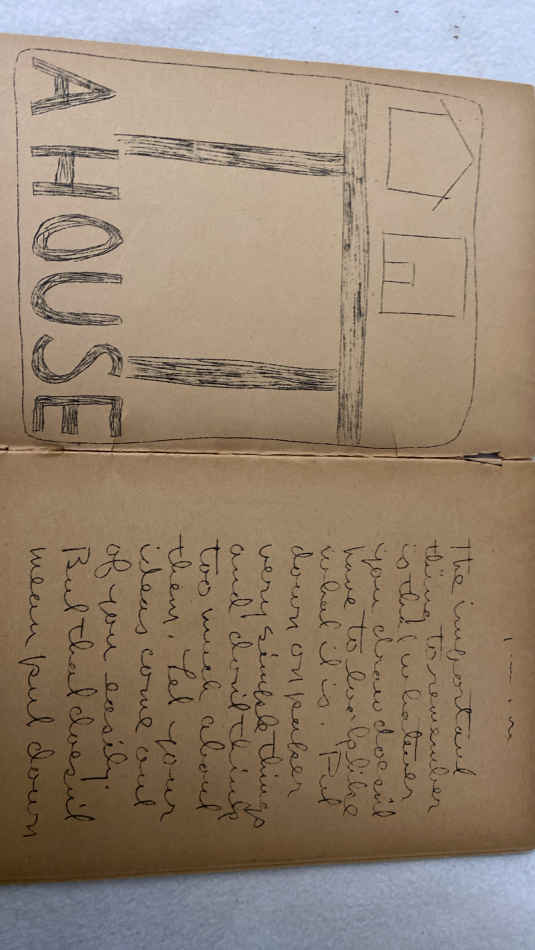 A HOUSE
The important
thing to remember
is that whatever
you draw doesn't
have to look like
what it is. Put
down on paper
very simple things
and don't think
too much about
them. Let your
ideas come out
of you easily.
But that doesn't
mean put down